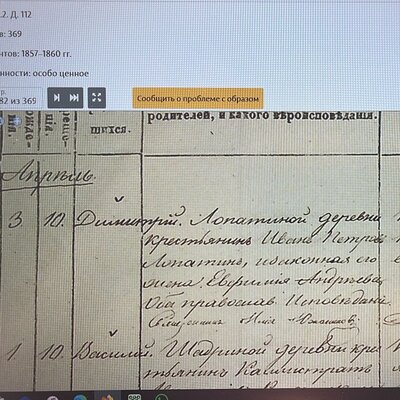 .2. Д. 112
в: 369
нтов: 1857–1860 гг.
нности: особо ценное
р.
82 из 369
Сообщить о проблеме с образом
рожде-
нія.
реще-
нія.
шихся.
родителей, и какого вѣроисповѣданія.
Апрѣль
3 10. Димитрій. Лопатиной деревни
крестьянинъ Иванъ Петровъ
Лопатинъ, и законная его
жена Евфимія Андреева
Оба православ. Исповѣданія
1. 10. Василій. Шадриной деревни кре
стьянинъ Каллистратъ